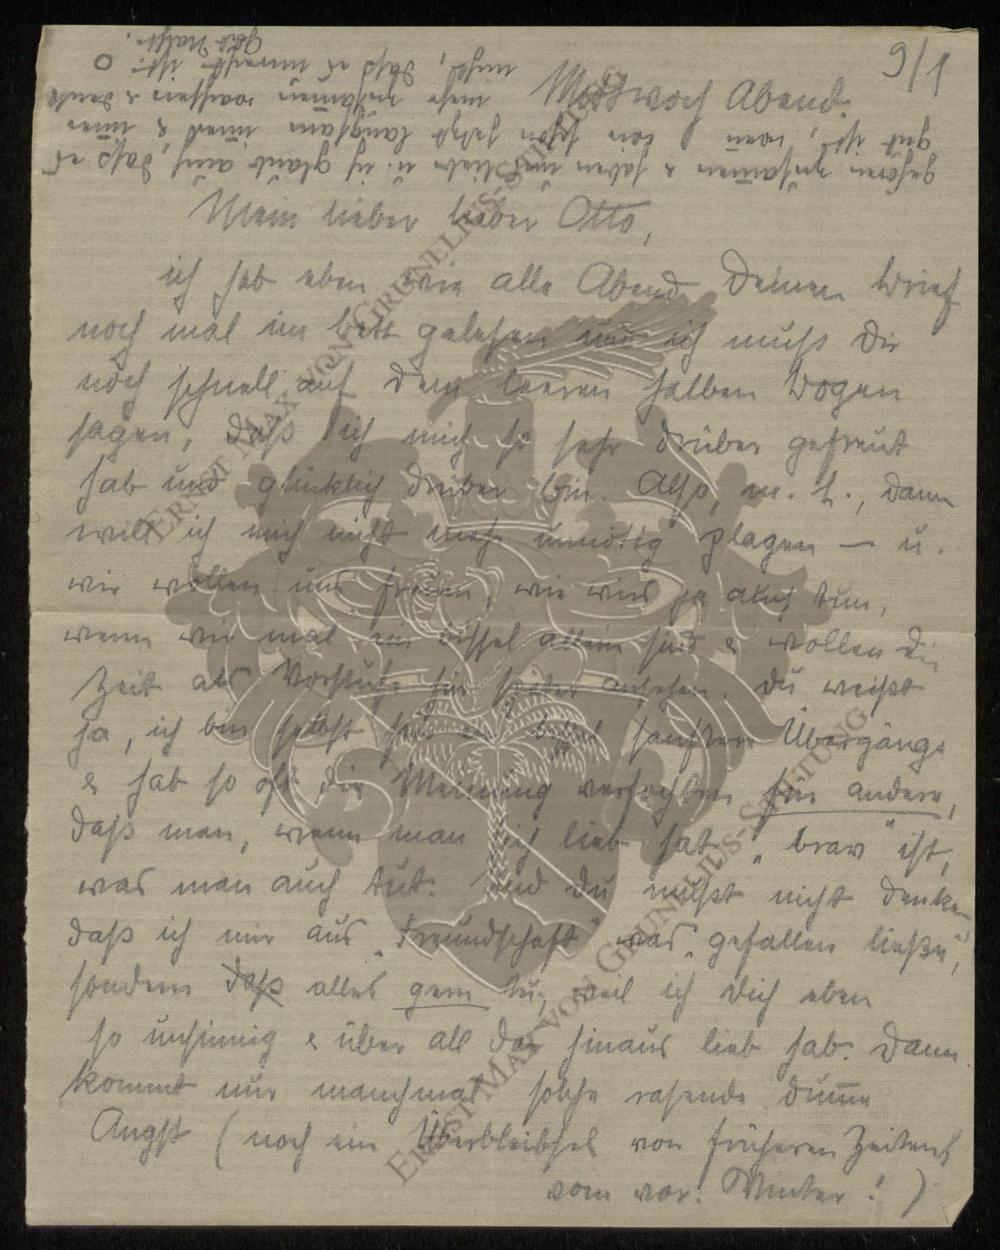 9/1
Mittwoch Abend.
Mein lieber lieber Otto,
ich hab eben wie alle Abend Deinen Brief
noch mal im Bett gelesen und ich muß Dir
noch schnell auf dem leeren halben Bogen
sagen, daß ich mich so sehr drüber gefreut
hab und glücklich drüber bin. Also, m. L., dann
will ich mich nicht mehr unnötig plagen — u.
wir wollen uns freuen, wie wirs ja auch tun,
wenn wir mal ein bissel allein sind & wollen die
Zeit als Vorstufe für später ansehen. Du weißt
ja, ich bin selbst für ein bissel sanftere Übergänge
& hab so oft die Meinung verfochten für andere,
daß man, wenn man sich lieb hat „brav" ist,
was man auch tut. Und Du mußt nicht denken
daß ich mir aus „Freundschaft" was „gefallen ließe",
sondern daß alles gern tu, weil ich Dich eben
so unsinnig & über all das hinaus lieb hab. Dann
kommt nur manchmal solche rasende dumme
Angst (noch ein Überbleibsel von früheren Zeiten
vom vor. Winter!)
gehören zusammen & haben uns lieb u. ich glaub auch, daß es
gut ist, wenn wir schon jetzt langsam immer & immer
mehr zusammen wachsen & denk
nicht, daß es unrecht ist.
Gut Nacht.
ERNST MAX VON GRUNELIUS-STIFTUNG
ERNST MAX VON GRUNELIUS-STIFTUNG